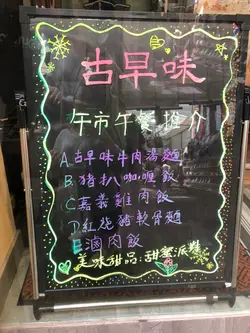 古早味
午市午餐推介
A.古早味牛肉湯麵
B.豬扒咖喱飯
C.嘉義雞肉飯
D.紅燒豬軟骨麵
E.滷肉飯
美味甜品:甜蜜派糕